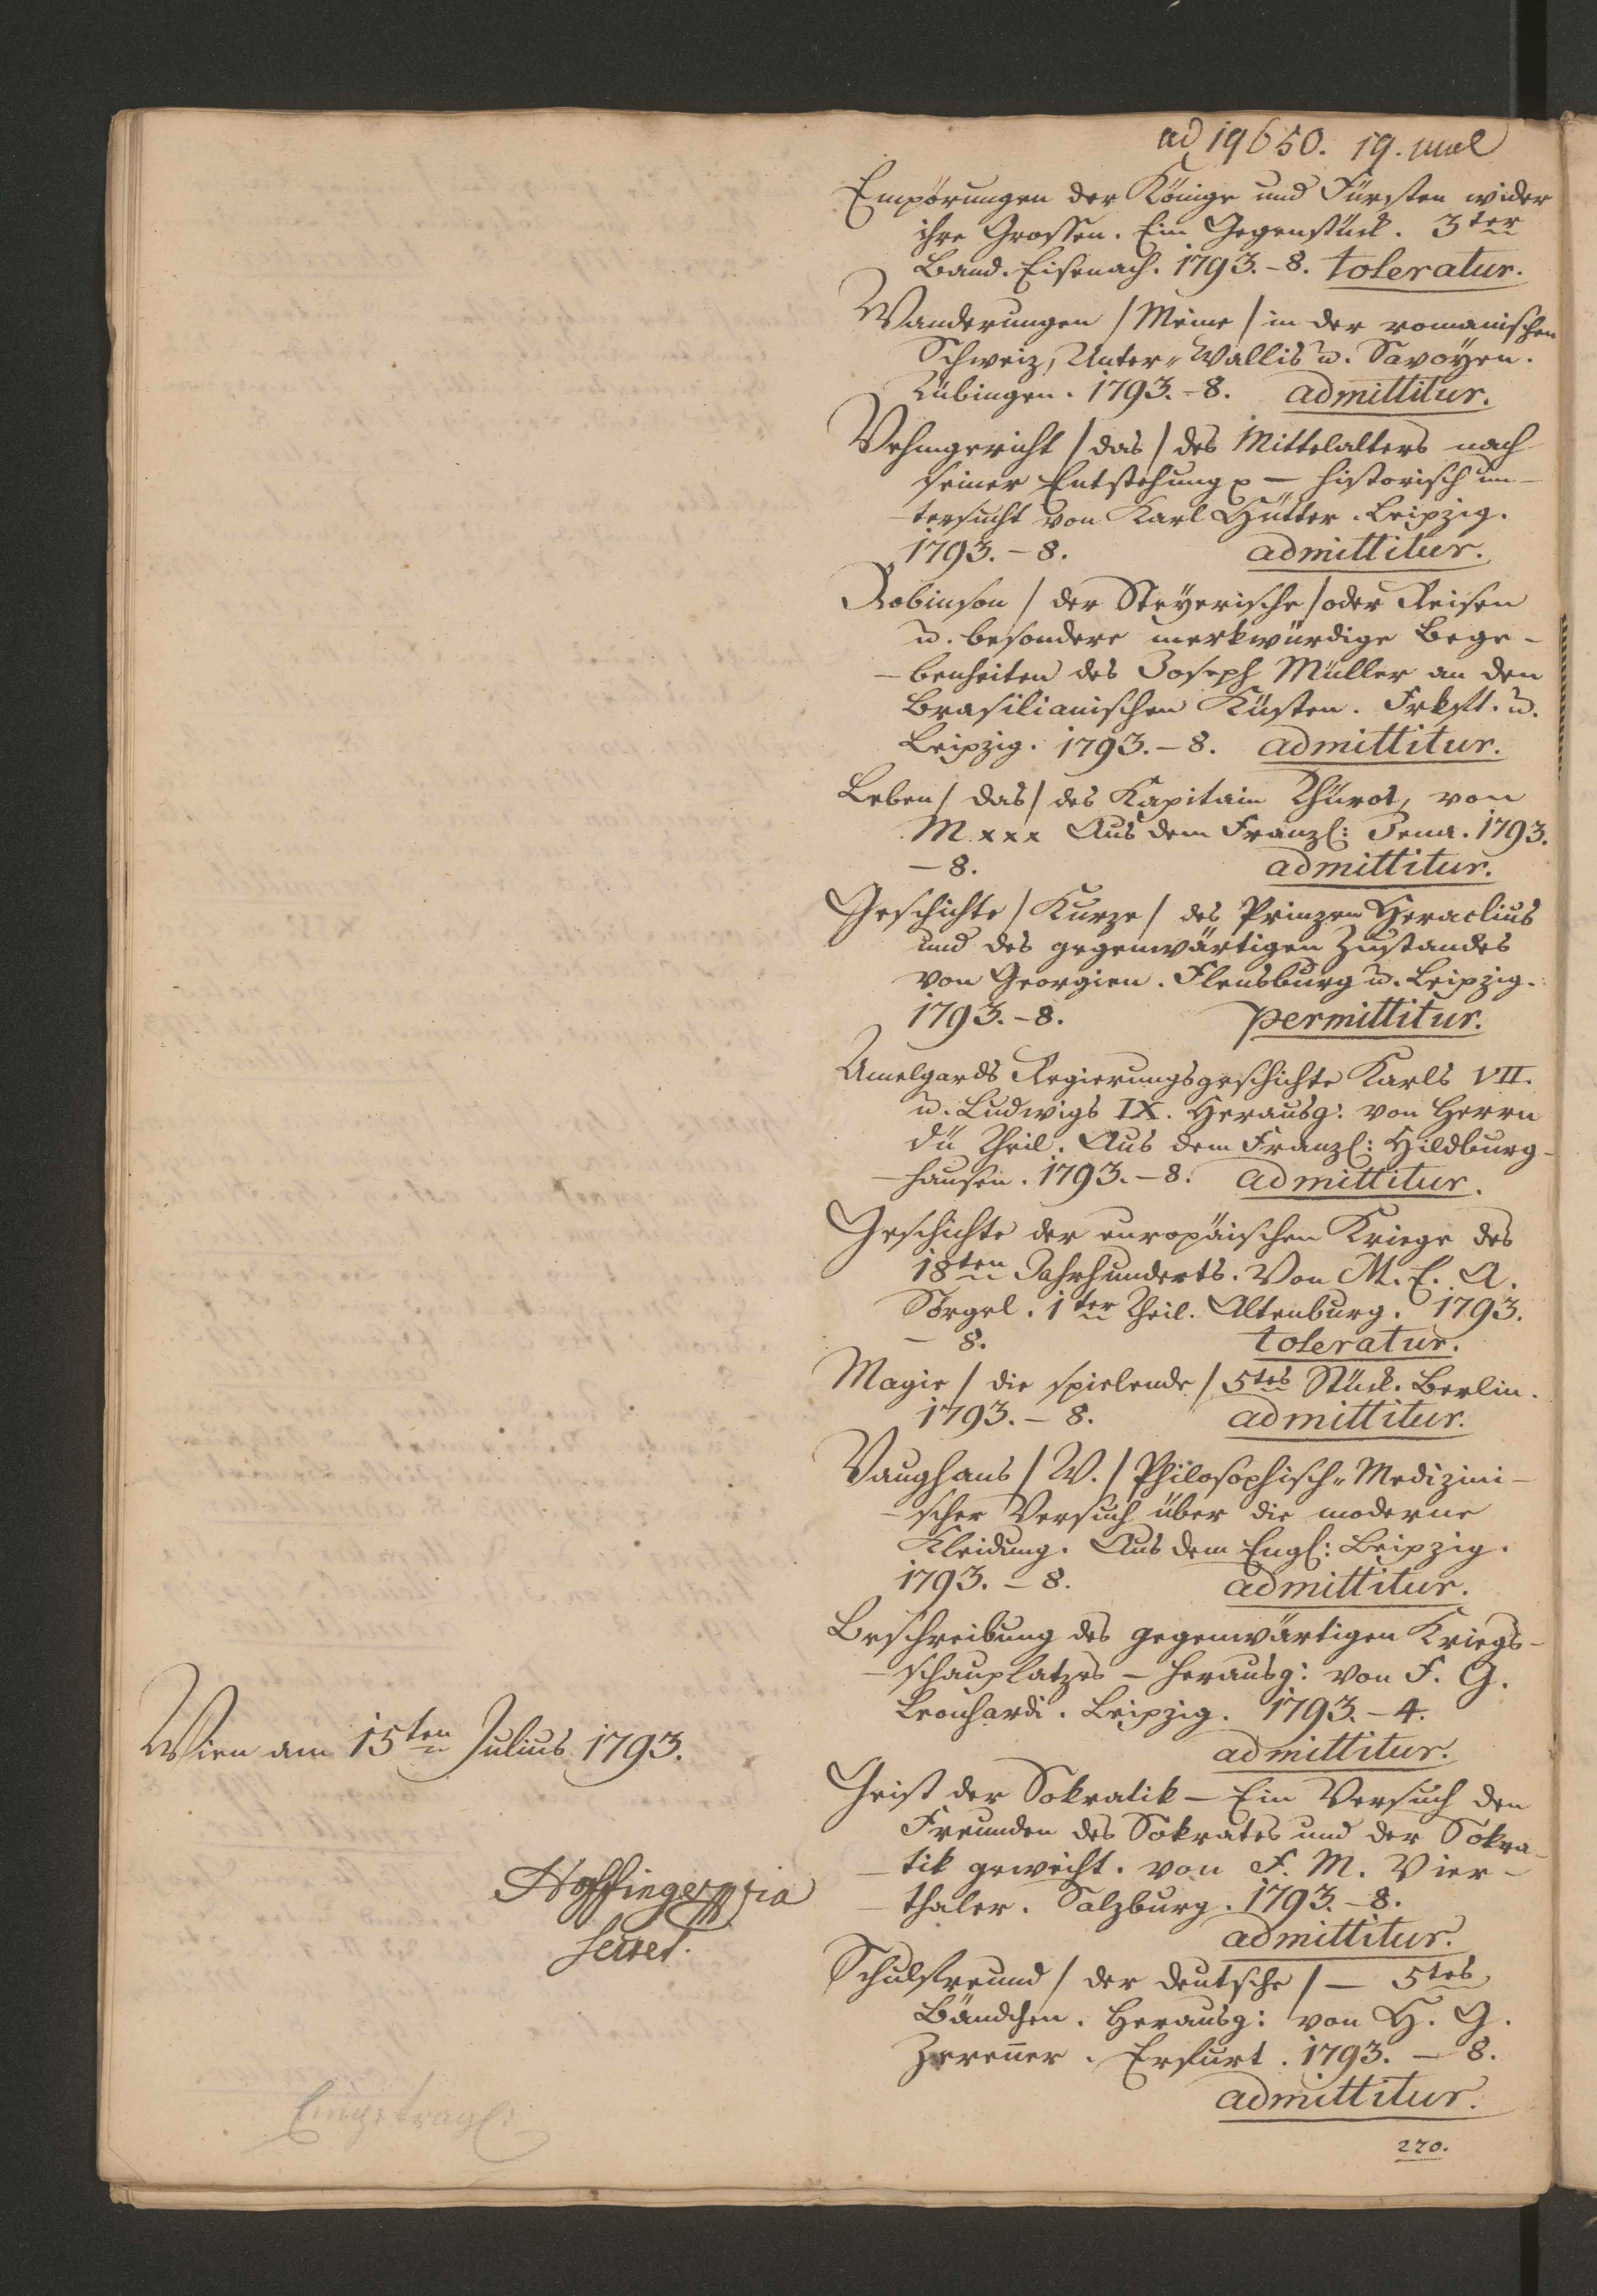 ad 19650. 19. Jul
Empörungen der Könige und Fürsten wider
ihre Grossen. Ein Gegenstück. 3ter
Band. Eisenach. 1793.-8. toleratur.
Wanderungen / Meine / in der romanischen
Schweiz, Unter-Wallis u. Savoÿen.
Tübingen. 1793.-8. admittitur.
Vehmgericht / das / des Mittelalters nach
seiner Entstehung - historisch un-
-tersucht von Karl Hütter. Leipzig.
1793.-8. admittitur.
Robinson / der Steÿerische / oder Reisen
u. besondere merkwürdige Bege-
-benheiten des Joseph Müller an den
Brasilianischen Küsten. Frkft. u.
Leipzig. 1793.-8. admittitur.
Leben / das / des Kapitain Thürot, von
M xxx Aus dem Franz: Jena. 1793.
-8. admittitur.
Geschichte / Kurze / des Prinzen Heraclius
und des gegenwärtigen Zustandes
von Georgien. Flensburg u. Leipzig.
1793.-8. permittitur.
Amelgards Regierungsgeschichte Karls VII.
u. Ludwigs IX. Herausg: von Herrn
dü Theil. Aus dem Franz: Hildburg-
-hausen. 1793.-8. admittitur.
Geschichte der europäischen Kriege des
18ten Jahrhunderts. Von M. E. A.
Sörgel. 1ter Theil. Altenburg. 1793.
-8. toleratur.
Magie / die spielende / 5tes Stück. Berlin.
1793.-8. admittitur.
Vaughans / W. / Philosophisch-Medizini-
-scher Versuch über die moderne
Kleidung. Aus dem Engl: Leipzig.
1793.-8. admittitur.
Beschreibung des gegenwärtigen Kriegs-
-schauplatzes - herausg: von F. G.
Leonhardi. Leipzig. 1793.-4.
admittitur.
Geist der Sokratik - Ein Versuch den
Freunden des Sokrates und der Sokra-
-tik geweiht. von F. M. Vier-
-thaler. Salzburg. 1793.-8.
admittitur.
Schulfreund / der deutsche / - 5tes
Bändchen. Herausg: von H. G.
Zerenner. Erfurt. 1793.-8.
admittitur.
270.
Wien am 15ten Julius 1793.
Hoffinger mpria
Secret.
Eingetragen